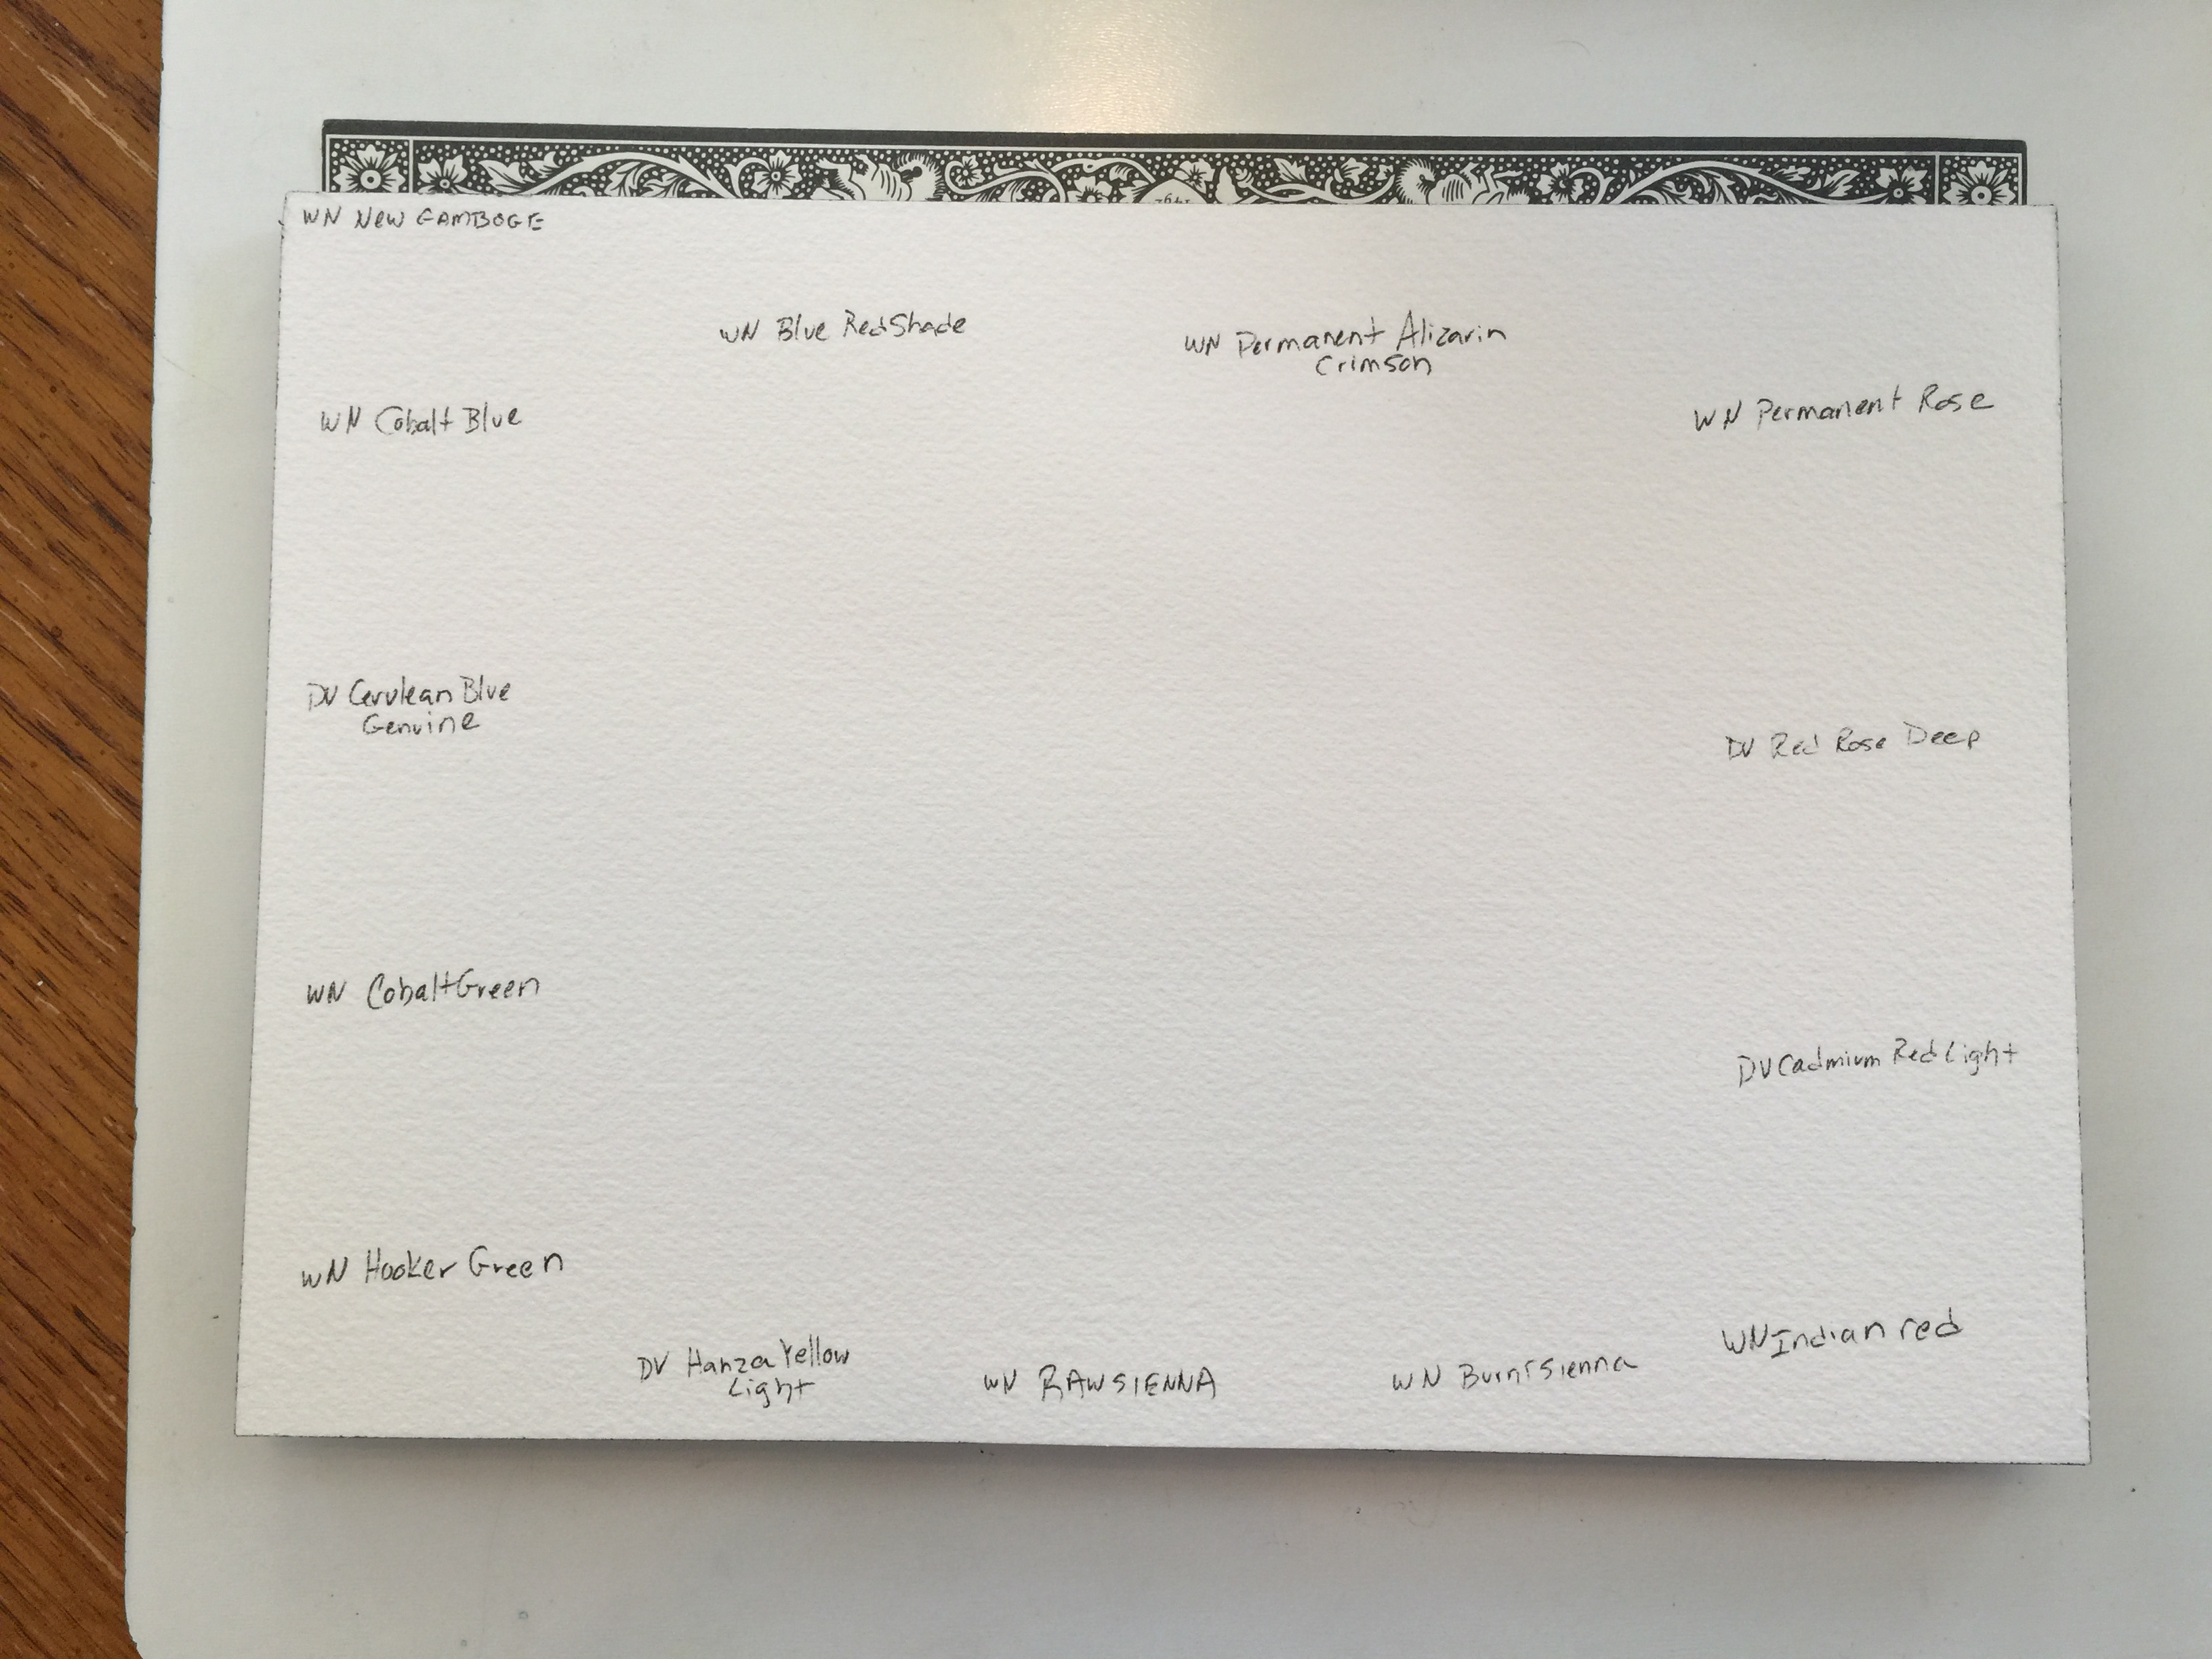 WN NEW GAMBOGE
WN Blue Red Shade
WN Permanent Alizarin
Crimson
WN Cobalt Blue
WN Permanent Rose
DV Cerulean Blue
Genuine
DV Red Rose Deep
WN Cobalt Green
DV Cadmium Red Light
WN Hooker Green
DV Hanza Yellow
Light
WN RAW SIENNA
WN Burnt Sienna
WN Indian red